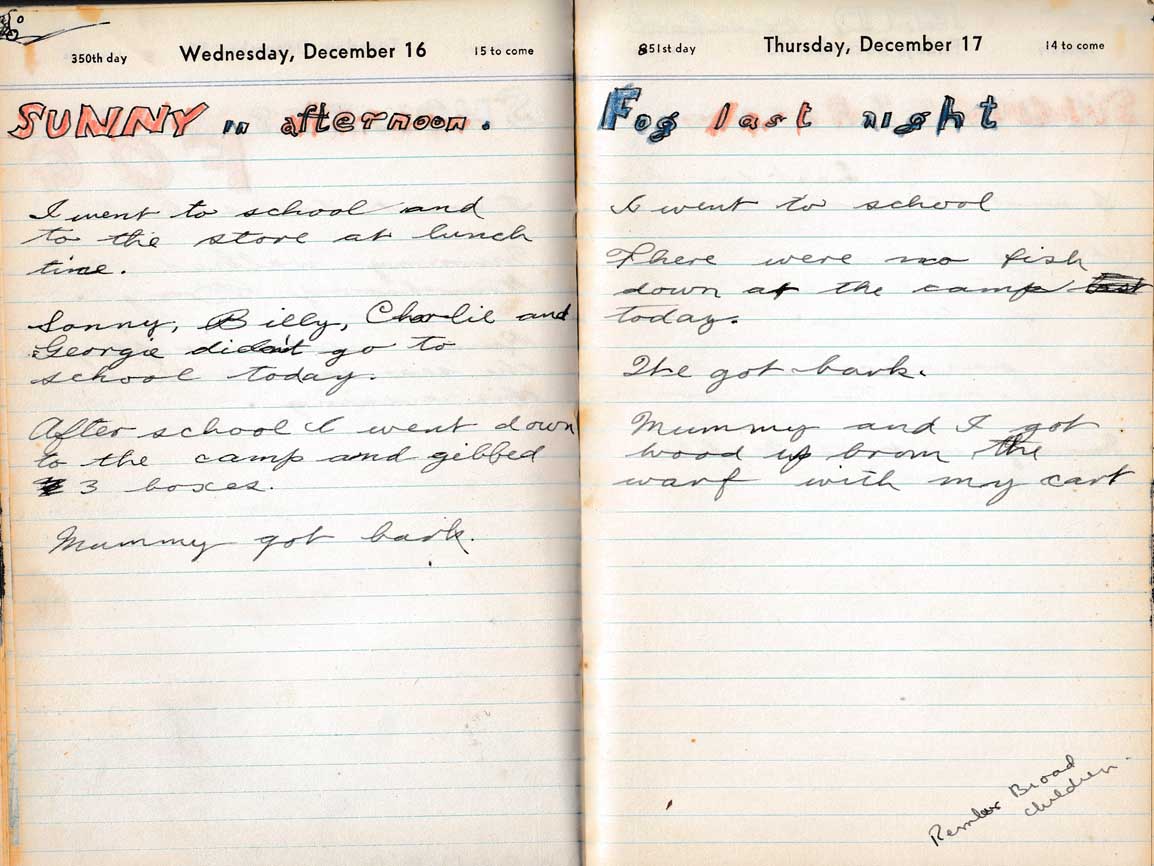 350th day Wednesday, December 16 15 to come
SUNNY in afternoon.
I went to school and
to the store at lunch
time.
Sonny, Billy, Charlie and
Georgie didn't go to
school today.
After school I went down
to the camp and gibbed
3 boxes.
Mummy got bark.
351st day Thursday, December 17 14 to come
Fog last night
I went to school
There were no fish
down at the camp
today.
We got bark.
Mummy and I got
wood up from the
warf with my cart
Broad
children.